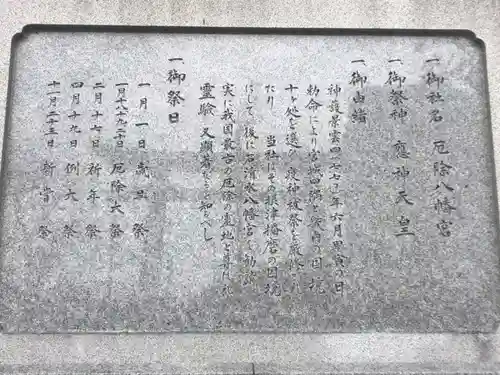 一 御社名 厄除八幡宮
一 御祭神 應神天皇
一 御由緒
神護景雲四(七七〇)年六月甲寅の日
勅命により宮城四隅と畿内の国境
十ヶ処を選び疫神祓祭を厳修され
たり 当社はその摂津播磨の国境
にして 後に石清水八幡宮を勧請
実に我国最古の厄除の霊地と有り
霊験 又顕著なるを知るべし
一 御祭日
一月一日 歳旦祭
一月十八十九二十日 厄除大祭
二月十七日 祈年祭
四月十九日 例大祭
十一月二十三日 新嘗祭